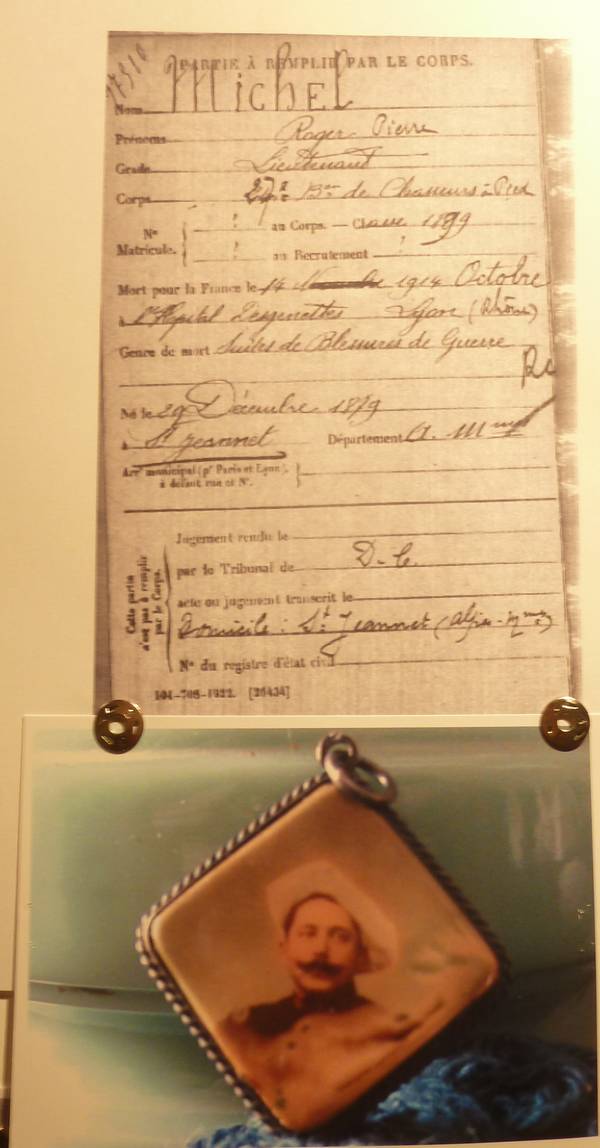 PARTIE À REMPLIR PAR LE CORPS.
Nom MICHEL
Prénoms Roger Pierre
Grade Lieutenant
Corps 27e Bon de Chasseurs à Pied
No Matricule. { au Corps. — Classe 1899
au Recrutement
Mort pour la France le 14 Novembre 1914 Octobre
à l'Hôpital Desgenettes Lyon (Rhône)
Genre de mort Suites de Blessures de Guerre
Né le 29 Décembre 1879
à St Jeannet Département A. Mmes
Arrt municipal (pr Paris et Lyon),
à défaut rue et No.
Cette partie
n'est pas à remplir
par le Corps.
Jugement rendu le
par le Tribunal de D. C.
acte ou jugement transcrit le
Domicile : St Jeannet (Alpes-Mmes)
No du registre d'état civil
101-708-1922. [26434]